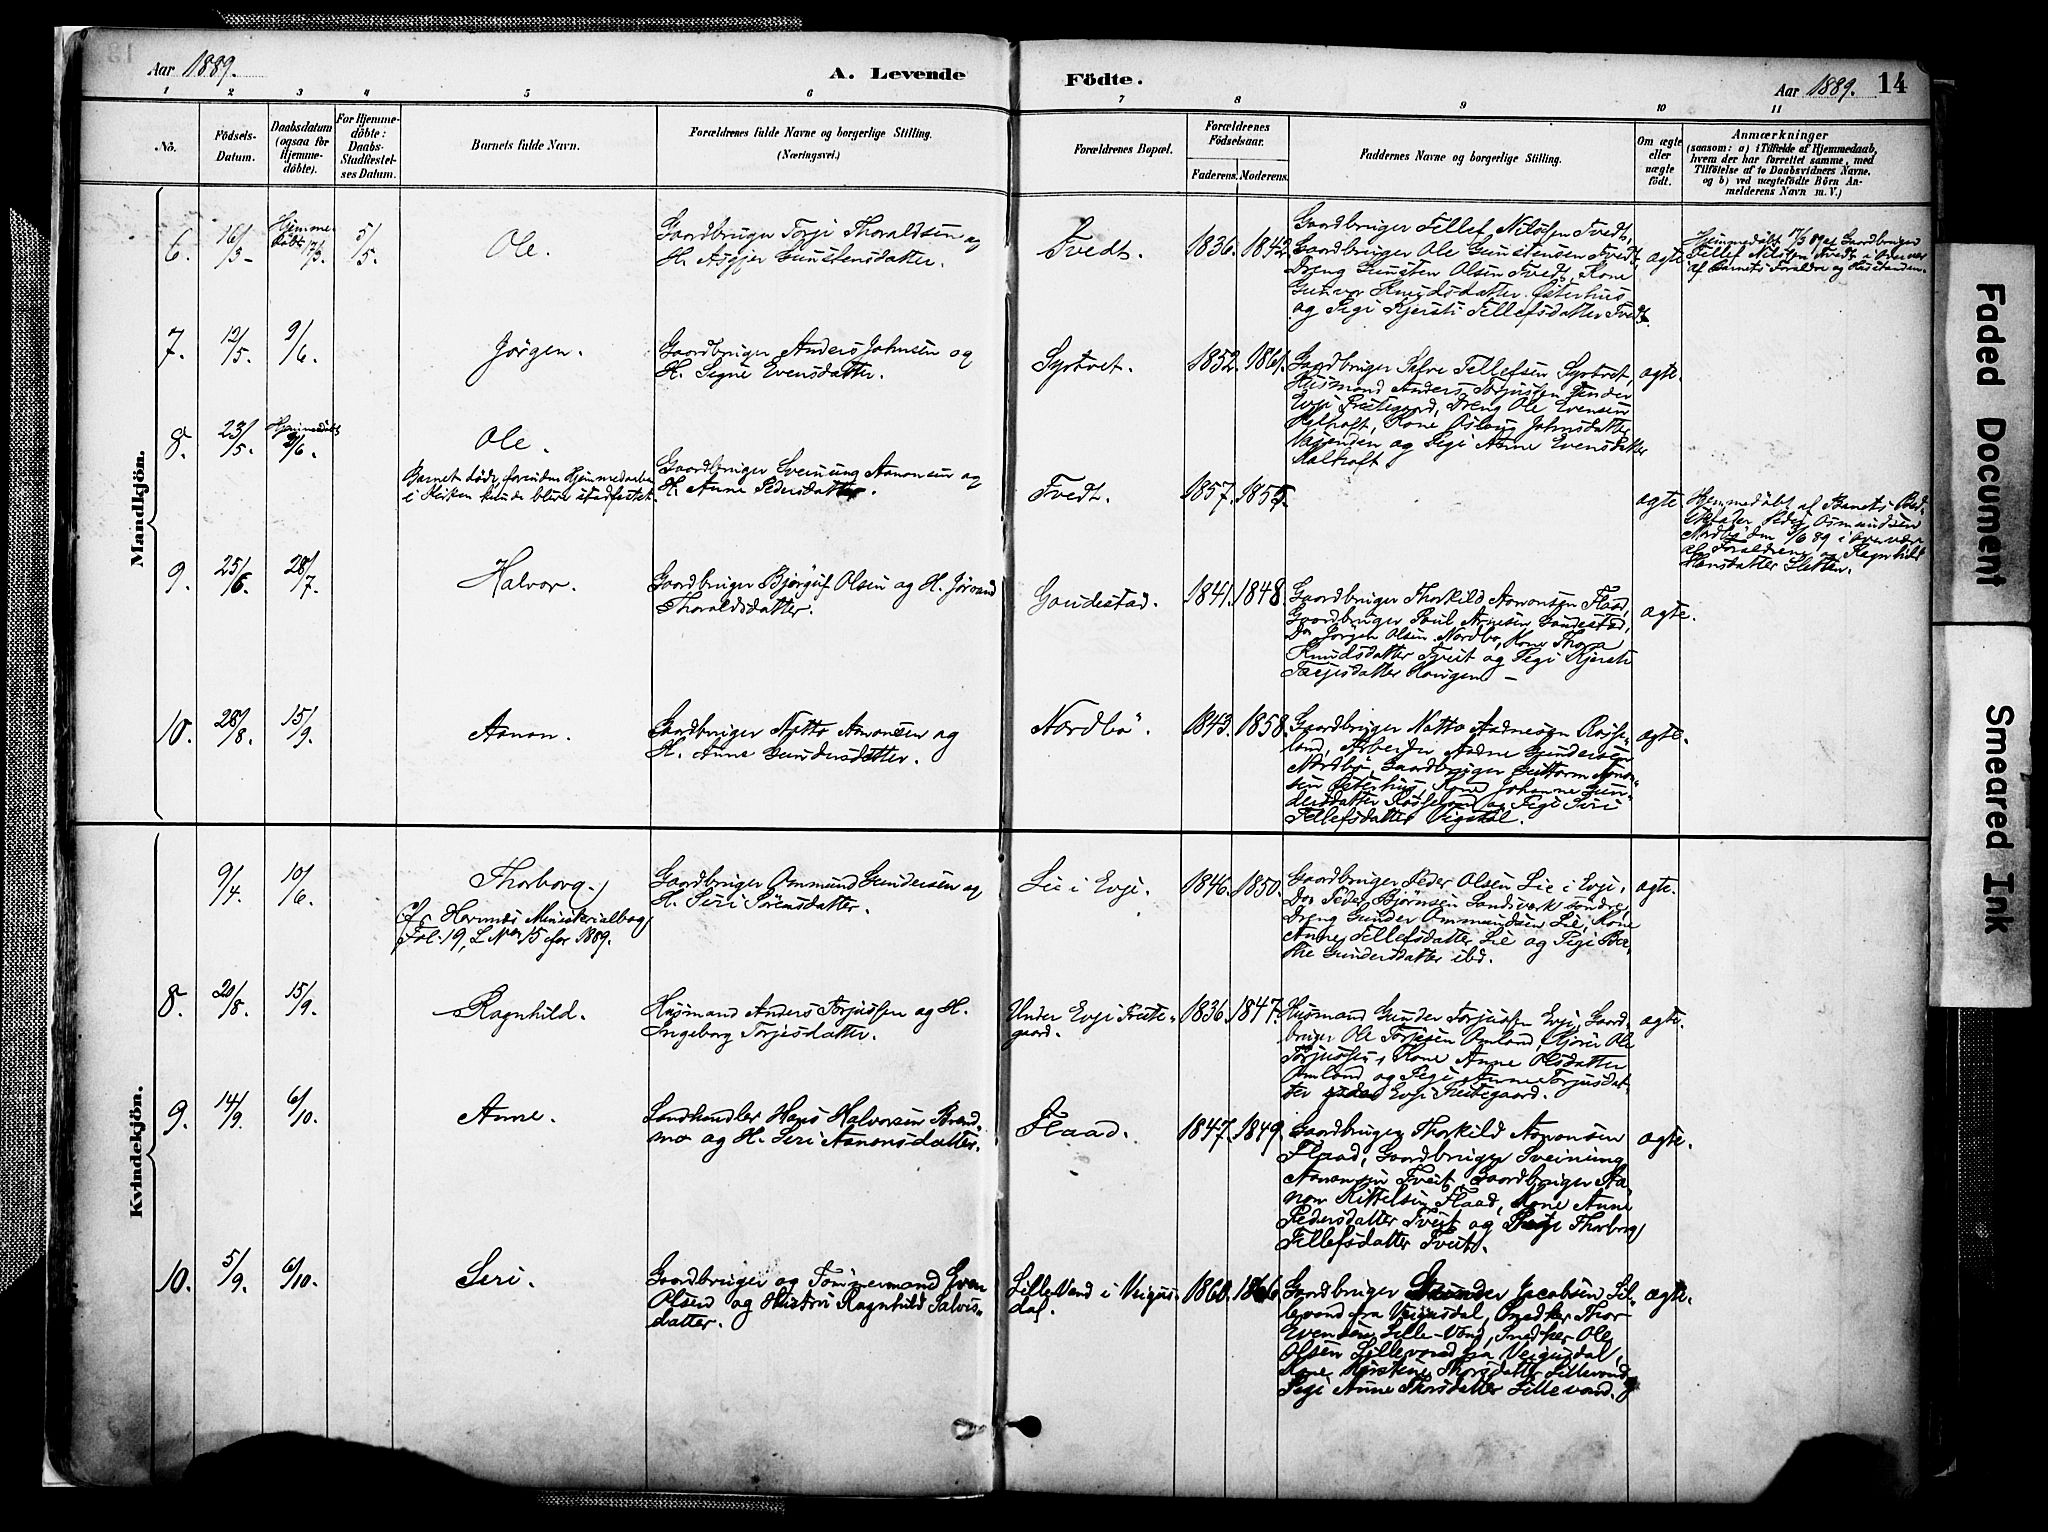 Aar 1889.
A. Levende Födte.
Aar 1889. 14
1 2 3 4 5 6 7 8 9 10 11
No.
Födsels-
Datum.
Daabsdatum
(ogsaa for
Hjemme-
döbte).
For Hjemme-
döbte:
Daabs-
Stadfæstel-
ses Datum.
Barnets fulde Navn.
Forældrenes fulde Navne og borgerlige Stilling.
(Næringsvei.)
Forældrenes Bopæl.
Forældrenes
Födselsaar.
Faderens. Moderens.
Faddernes Navne og borgerlige Stilling.
Om ægte
eller
uægte
födt.
Anmærkninger
(saasom: a) i Tilfælde af Hjemmedaab,
hvem der har forrettet samme, med
Tilföielse af to Daabsvidners Navne,
og b) ved uægtefödte Börn An-
melderens Navn m. V.)
Mandkjön.
6. 16/3- Hjemme-
döbt 17/3. 5/5. Ole.
Gaardbruger Torje Thoraldsen og
H. Asgjer Gunstensdatter.
Tvedt. 1836. 1842
Gaardbruger Tellef Nilssen Tvedt,
Gaardbruger Ole Gunstensen Tvedt,
Dreng Gunsten Olsen Tvedt, Kone
Gunvor Knudsdatter Østerhus
og Pige Kjersti Tellefsdatter Tvedt.
ægte.
Hjemmedöbt 17/3 89 af Gaardbruger
Tellef Nilssen Tvedt i Overvær
af Barnets Forældre og Husstanden.
7. 12/5. 9/6. Jörgen.
Gaardbruger Anders Johnsen og
H. Signe Evensdatter.
Syrtvet. 1852. 1861.
Gaardbruger Tellefsen Syrtvet,
Husmand Anders Torjussen under
Evje Præstegaard, Dreng Ole Evensen
Kone Aslaug Johnsdatter
og Pige Anne Evensdatter
ægte.
8. 23/5. Hjemmedöbt
2/6. Ole.
Barnet döde, forinden Hjemmedaaben
i Kirken kunde blive stadfæstet.
Gaardbruger Sveinung Aanonsen og
H. Anne Pedersdatter.
Tvedt. 1857. 1855.
ægte.
Hjemmedöbt af Barnets Bed-
stefader Peder Osmundsen
Nordbö den 2/6 89 i Overvær
af Forældrene og Ragnhild
Hansdatter Sletten.
9. 25/6. 28/7. Halvor.
Gaardbruger Bjørguf Olsen og H. Jöraand
Thoraldsdatter.
Gaudestad. 1841. 1848.
Gaardbruger Thorkild Aanonsen Flaad,
Gaardbruger Poul Arnesen Gaudestad,
Do Jörgen Olsen Nordbö, Kone Thora
Knudsdatter Tveit og Pige Kjersti
Terjesdatter
ægte.
10. 28/8. 15/9. Aanon.
Gaardbruger Notto Aanonsen og
H. Anne Gundersdatter.
Nordbö 1843. 1858.
Gaardbruger Notto Aadnesen Rosse-
land, Arbeider Aadne Gundersen
Nordbö, Gaardbruger Guttorm Aanon-
sen Østerhus, Kone Johanne Gun-
dersdatter Rosseland og Pige Siri
Tellefsdatter Vigstøl.
ægte.
Kvindekjön.
9/4. 10/6. Thorborg.
cfr Hornnes Ministerialbog
Fol. 19, L No 15 for 1889.
Gaardbruger Ommund Gundersen og
H. Siri Sörensdatter.
Lie i Evje. 1846. 1850.
Gaardbruger Peder Olsen Lie i Evje,
Do Peder Bjørnsen Landsverk söndre,
Dreng Gunder Ommundsen Lie, Kone
Anne Tellefsdatter Lie og Pige Ber-
the Gundersdatter ibd.
ægte.
8. 20/8. 15/9. Ragnhild.
Husmand Anders Torjussen og H.
Ingeborg Torjesdatter.
Under Evje Præste-
gaard. 1836. 1847.
Husmand Gunder Torjussen Evje, Gaard-
bruger Ole Torjesen Omland, Ole
Torjussen, Kone Anne Olsdatter
Omland og Pige Anne Torjusdat-
ter Evje Præstegaard.
ægte.
9. 14/9. 6/10. Anne.
Landhandler Hans Halvorsen Brend-
mo og H. Siri Aanonsdatter.
Flaad. 1847. 1849.
Gaardbruger Thorkild Aanonsen
Flaad, Gaardbruger Sveinung
Aanonsen Tveit, Gaardbruger Aa-
non Kittelsen Flaad, Kone Anne
Pedersdatter Tveit og Pige Thorborg
Tellefsdatter Tveit.
ægte.
10. 5/9. 6/10. Siri.
Gaardbruger og Tømmermand Even
Olsen og Hustru Ragnhild Salves-
datter.
Lille Vand i Veigus-
dal. 1860. 1866.
Gaardbruger Gunder Jacobsen Lil-
levand fra Veigusdal, Snedker Thor
Evensen Lille-Vand, Snedker Ole
Olsen Lillevand fra Veigusdal,
Kone Thorsdatter Lillevand,
Pige Anne Thorsdatter Lillevand.
ægte.
Faded Document
Smeared Ink